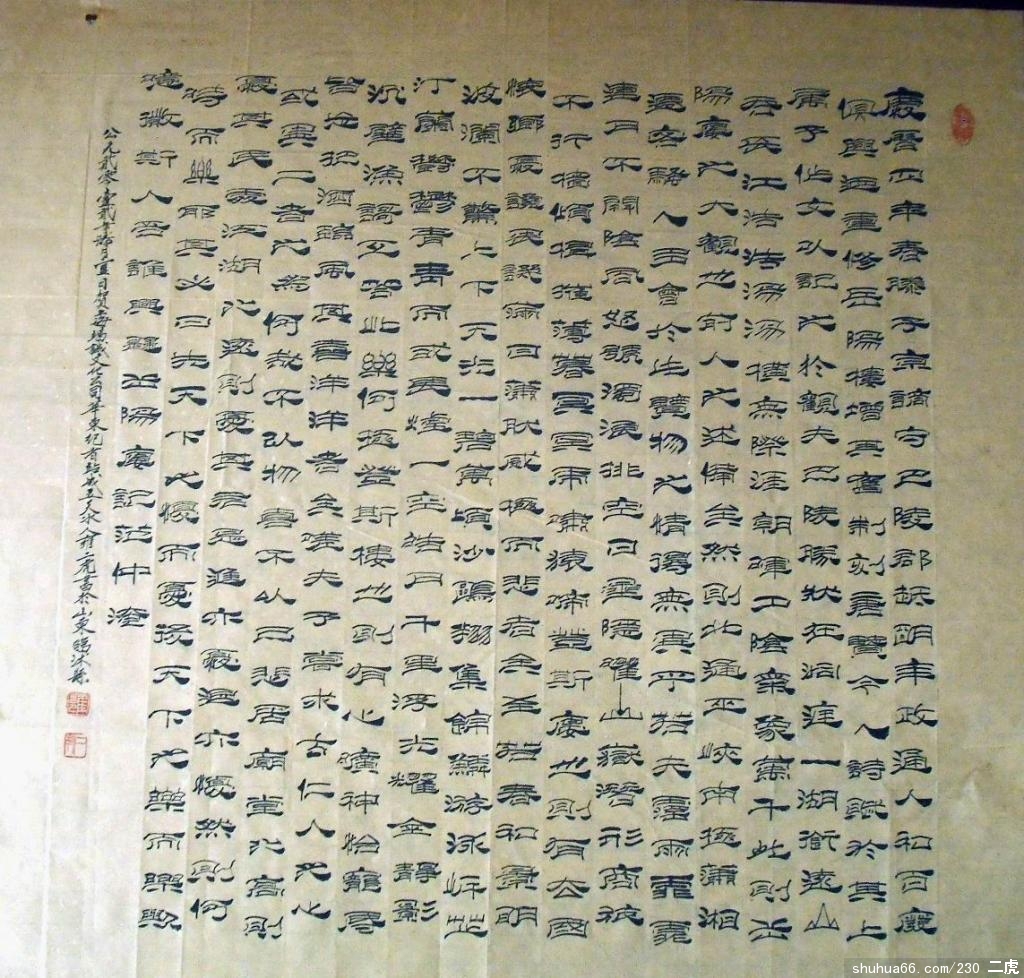 慶曆四年春滕子京謫守巴陵郡越明年政通人和百廢
俱興迺重修岳陽樓增其舊制刻唐賢今人詩賦於其上
屬予作文以記之於觀夫巴陵勝狀在洞庭一湖銜遠山
吞長江浩浩湯湯橫無際涯朝暉夕陰氣象萬千此則岳
陽樓之大觀也前人之述備矣然則北通巫峽南極瀟湘
遷客騷人多會於此覽物之情得無異乎若夫霪雨霏霏
連月不開陰風怒號濁浪排空日星隱耀山嶽潛形商旅
不行檣傾楫摧薄暮冥冥虎嘯猿啼登斯樓也則有去國
懷鄉憂讒畏譏滿目蕭然感極而悲者矣至若春和景明
波瀾不驚上下天光一碧萬頃沙鷗翔集錦鱗游泳岸芷
汀蘭鬱鬱青青而或長煙一空皓月千里浮光耀金靜影
沉璧漁歌互答此樂何極登斯樓也則有心曠神怡寵辱
皆忘把酒臨風其喜洋洋者矣嗟夫予嘗求古仁人之心
或異二者之為何哉不以物喜不以己悲居廟堂之高則
憂其民處江湖之遠則憂其君是進亦憂退亦憂然則何
時而樂耶其必曰先天下之憂而憂後天下之樂而樂歟
噫微斯人吾誰與歸岳陽樓記范仲淹
公元貳零壹貳年月日賀文化公司華東紀者站成立天水人二虎書於山東臨沭縣
shuhua66.com/230 二虎